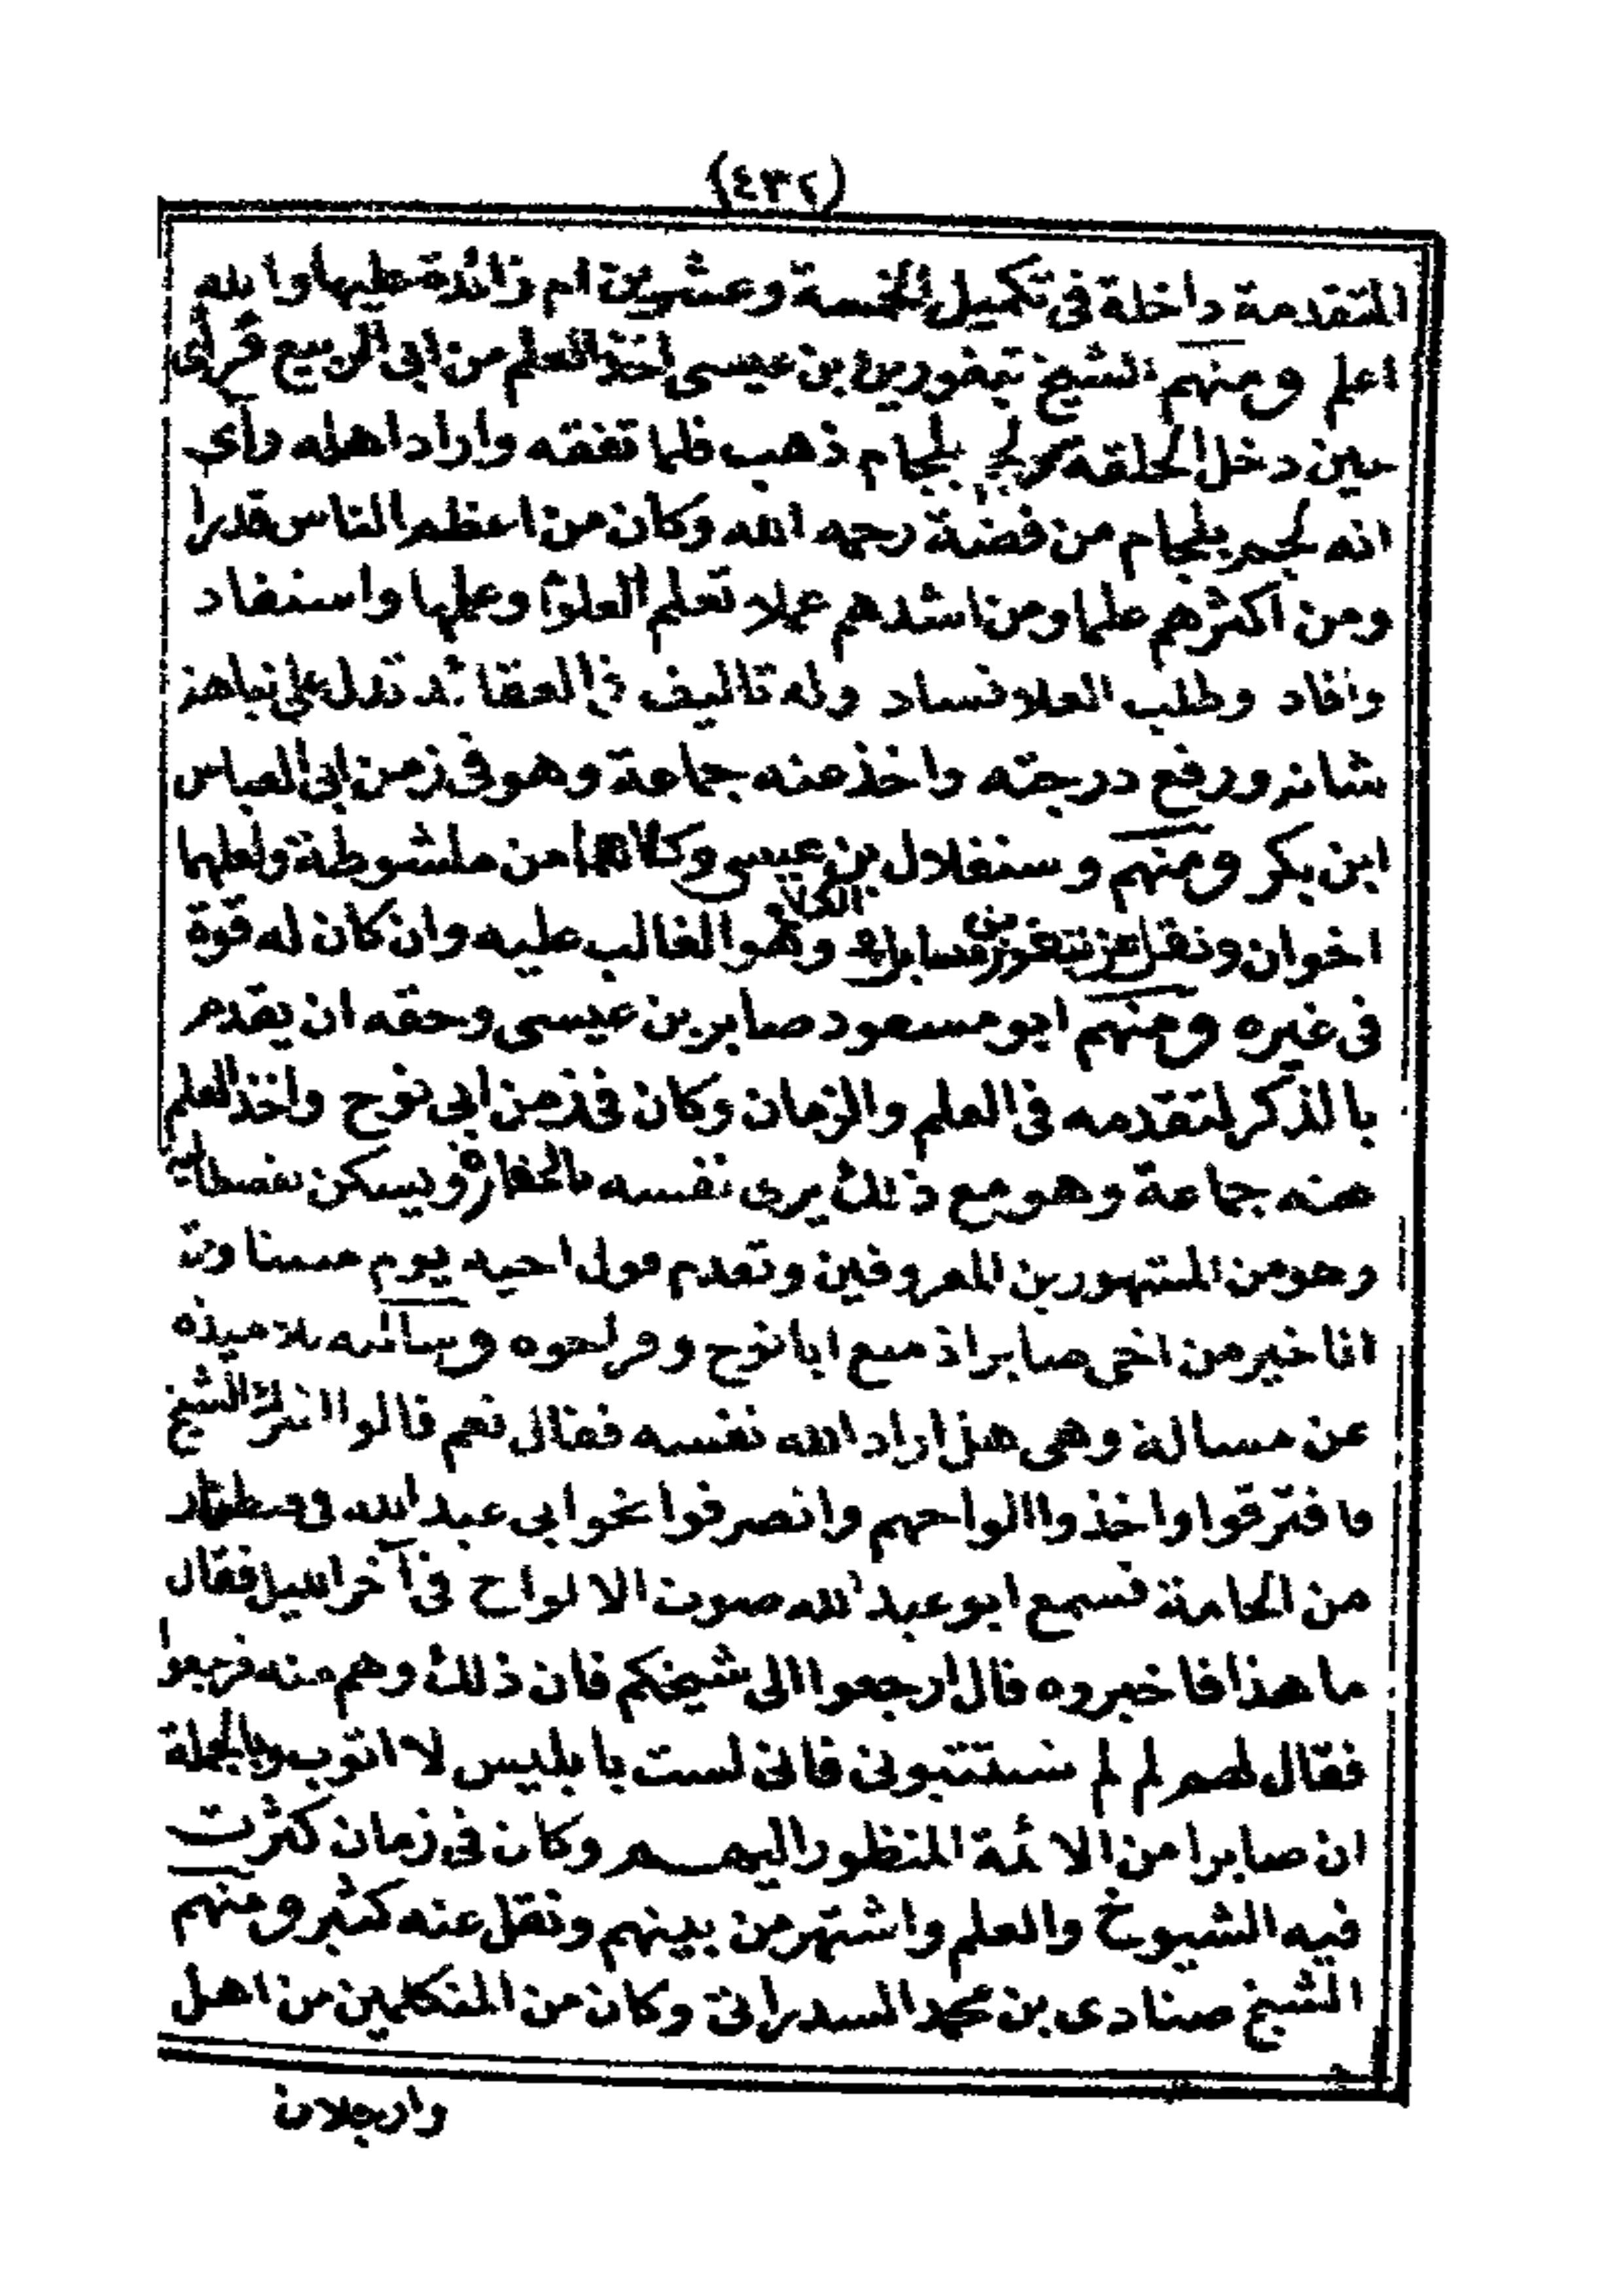 (٤٣٢)
المتقدمة داخلة فى تكميل الخمسة وعشرين ام زائدة عليها والله
اعلم ومنهم الشيخ تبغورين بن عيسى اخذ العلم من ابى الربيع فرأى
حين دخل الحلقه بلجام ذهب فلما تفقه واراد اهله رأى
انه لجم بلجام من فضة رحمه الله وكان من اعظم الناس قدرا
ومن اكثرهم علما ومن اشدهم عملا تعلم العلوم وعلمها واستفاد
وافاد وطلب العلا فساد وله تاليف فى العقائد تدل على نباهة
شانه ورفع درجته واخذ عنه جماعة وهو فى زمن ابى العباس
ابن بكر ومنهم وسنفلال بن عيسى وكلاهما من ملشوطة ولعلهما
اخوان ونقل عن تبغورين مسايل الكلام وهو الغالب عليه وان كان له قوة
فى غيره ومنهم ابو مسعود صابر بن عيسى وحقه ان يقدم
بالذكر لتقدمه فى العلم والزمان وكان فى زمن ابى نوح واخذ العلم
عنه جماعة وهو مع ذلك يرى نفسه بالحقارة ويسكن
وهو من المشهورين المعروفين وتقدم قول اخيه يوم
انا خير من اخى صابر اذ منع ابا نوح وسالمه تلاميذه
عن مسالة وهى هل اراد الله نفسه فقال نعم قالوا اشرك الشيخ
فافترقوا واخذوا الواحهم وانصرفوا نحو ابى عبد الله فى
من الحامة فسمع ابو عبد الله صوت الالواح فى آخر الليل فقال
ما هذا فاخبروه قال ارجعوا الى شيخكم فان ذلك وهم منه فرجعوا
فقال لهم لم لم تستتبونى فانى لست بابليس لا اتوب وبالجملة
ان صابرا من الائمة المنظور اليهم وكان فى زمان كثرت
فيه الشيوخ والعلم واشتهر من بينهم ونقل عنه كثير ومنهم
الشيخ صنادى بن محمد السدراتى وكان من المتكلمين من اهل
وارجلان